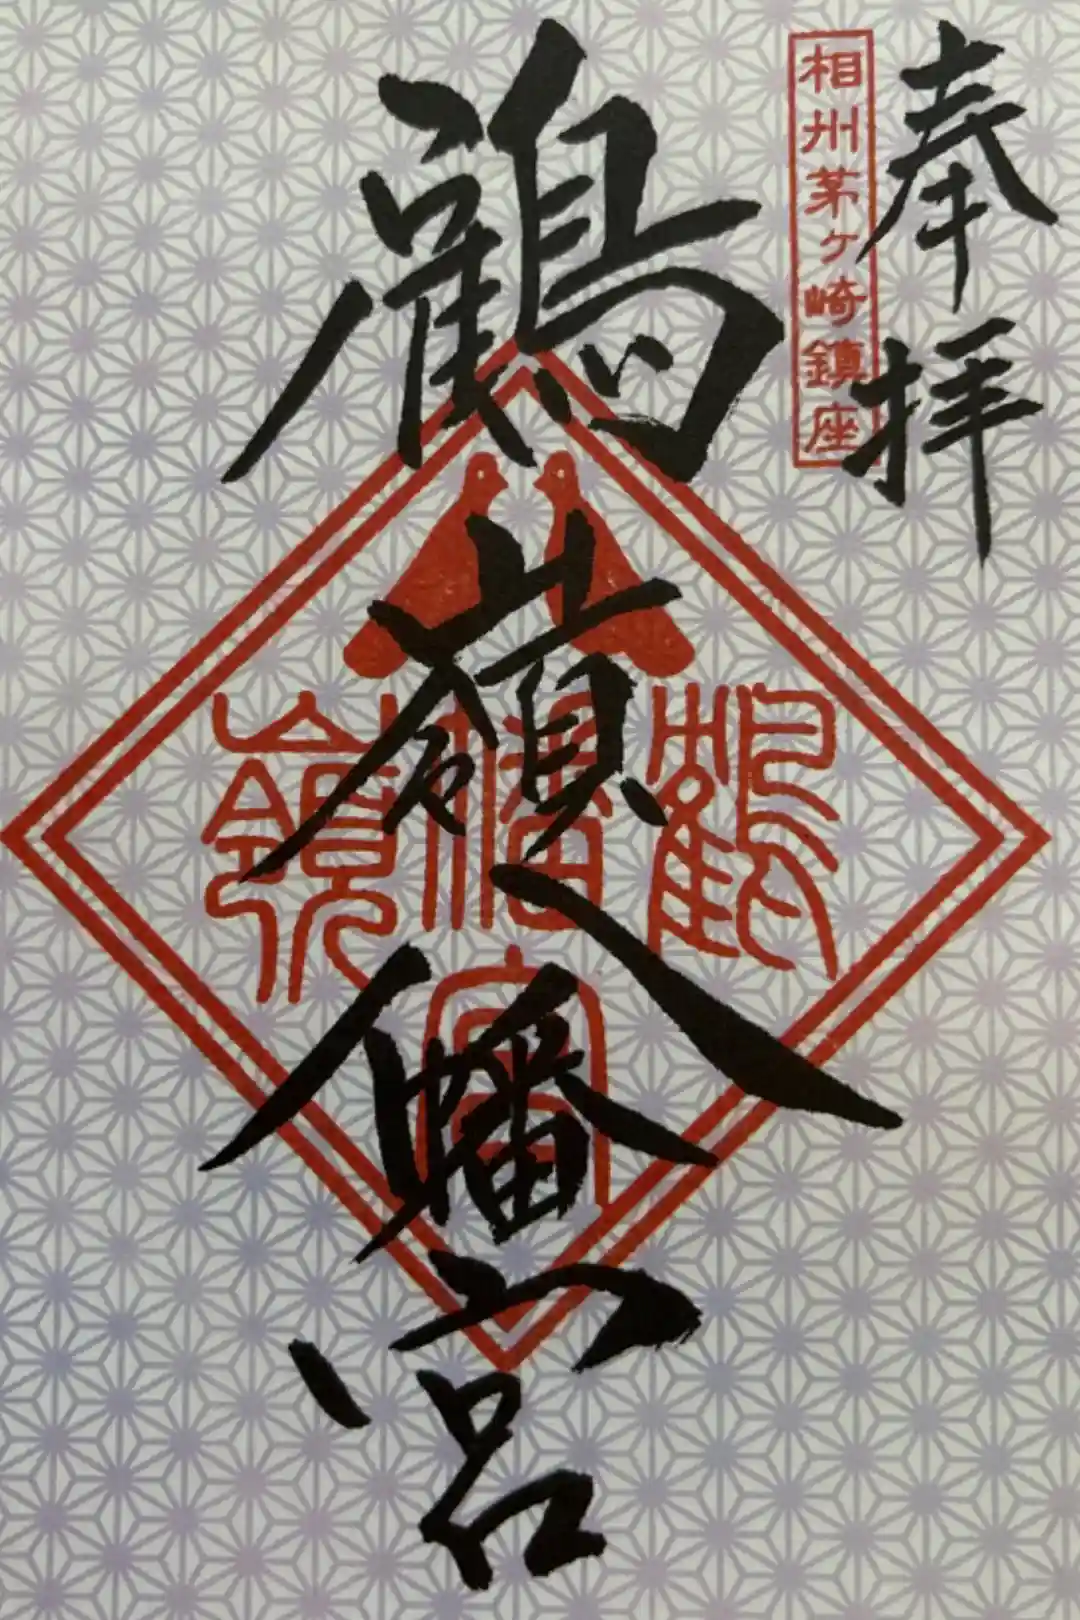 奉拝
相州茅ヶ崎鎮座
鶴嶺八幡宮
鶴
八幡宮
嶺